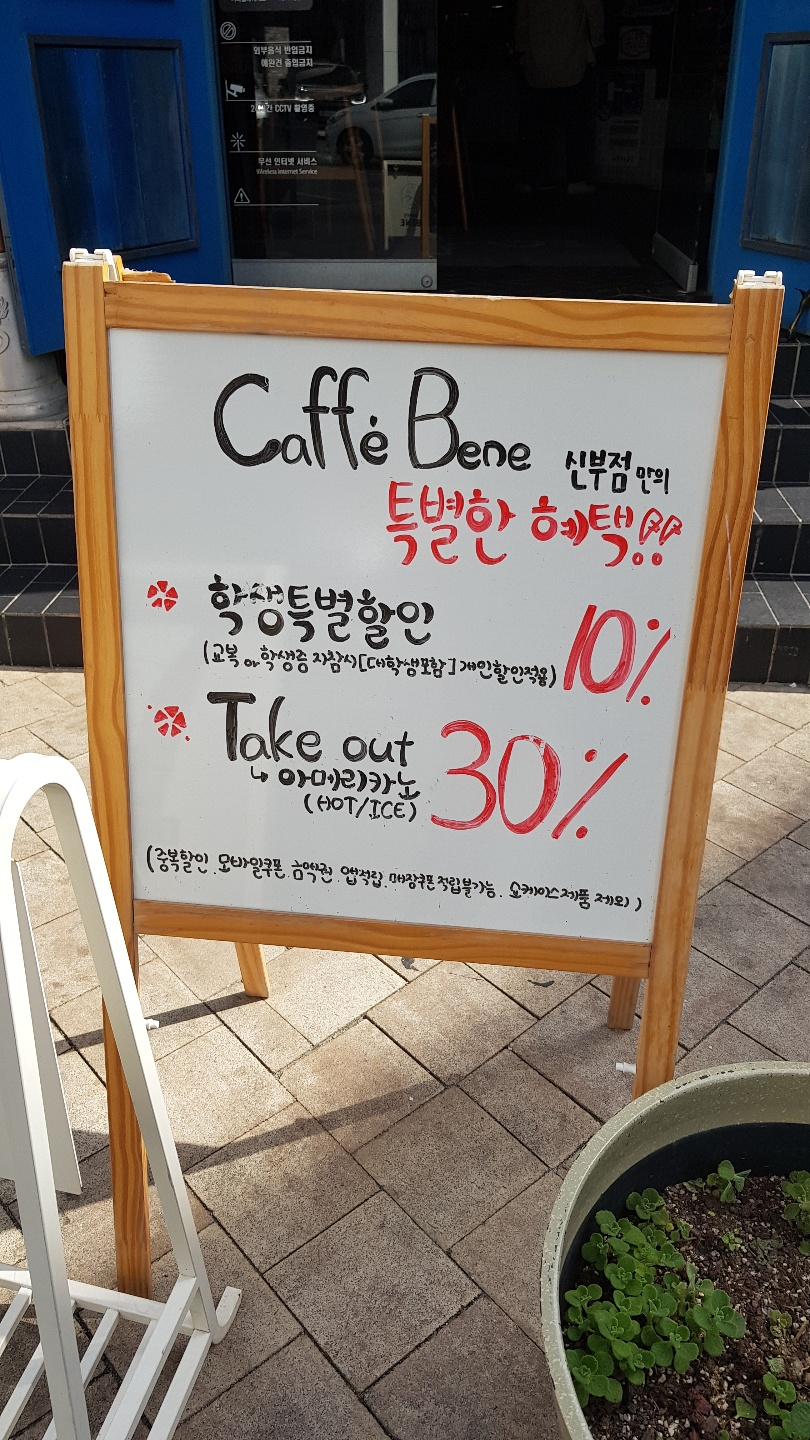 외부음식 반입금지
애완견 출입금지
24시간 CCTV 촬영중
무선 인터넷 서비스
Wireless Internet Service
Caffé Bene 신부점만의
특별한 혜택!!
학생특별할인 10%
(교복 or 학생증 지참시[대학생포함] 개인할인적용)
Take out 30%
↳ 아메리카노
(HOT/ICE)
(중복할인. 모바일쿠폰. 금액권. 앱적립. 매장쿠폰적립불가능. 쇼케이스제품 제외)